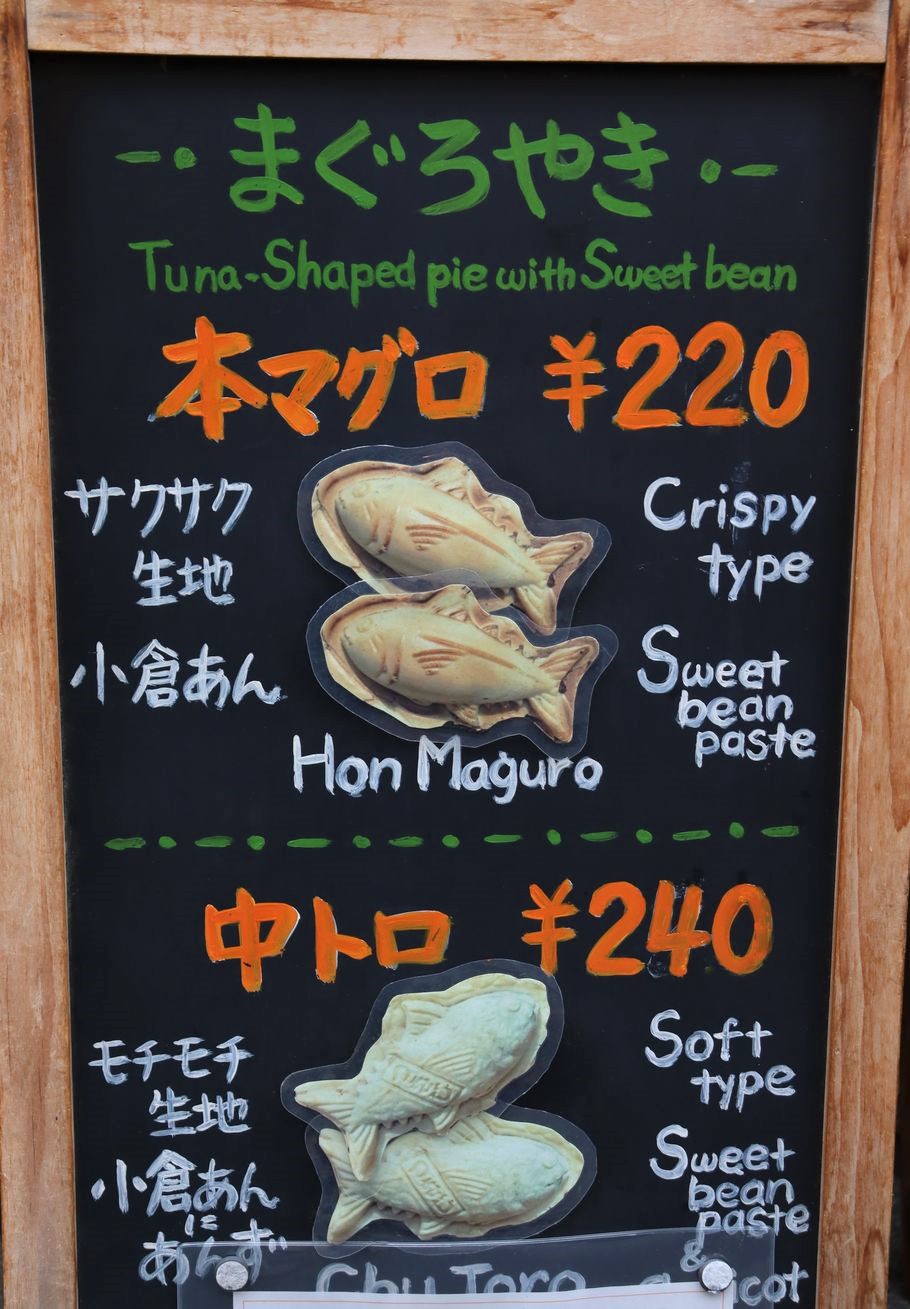 まぐろやき
Tuna-Shaped pie with Sweet bean
本マグロ ¥220
サクサク
生地
小倉あん
Crispy
type
Sweet
bean
paste
Hon Maguro
中トロ ¥240
モチモチ
生地
小倉あん
に
あんず
Soft
type
Sweet
bean
paste
&
Chu Toro